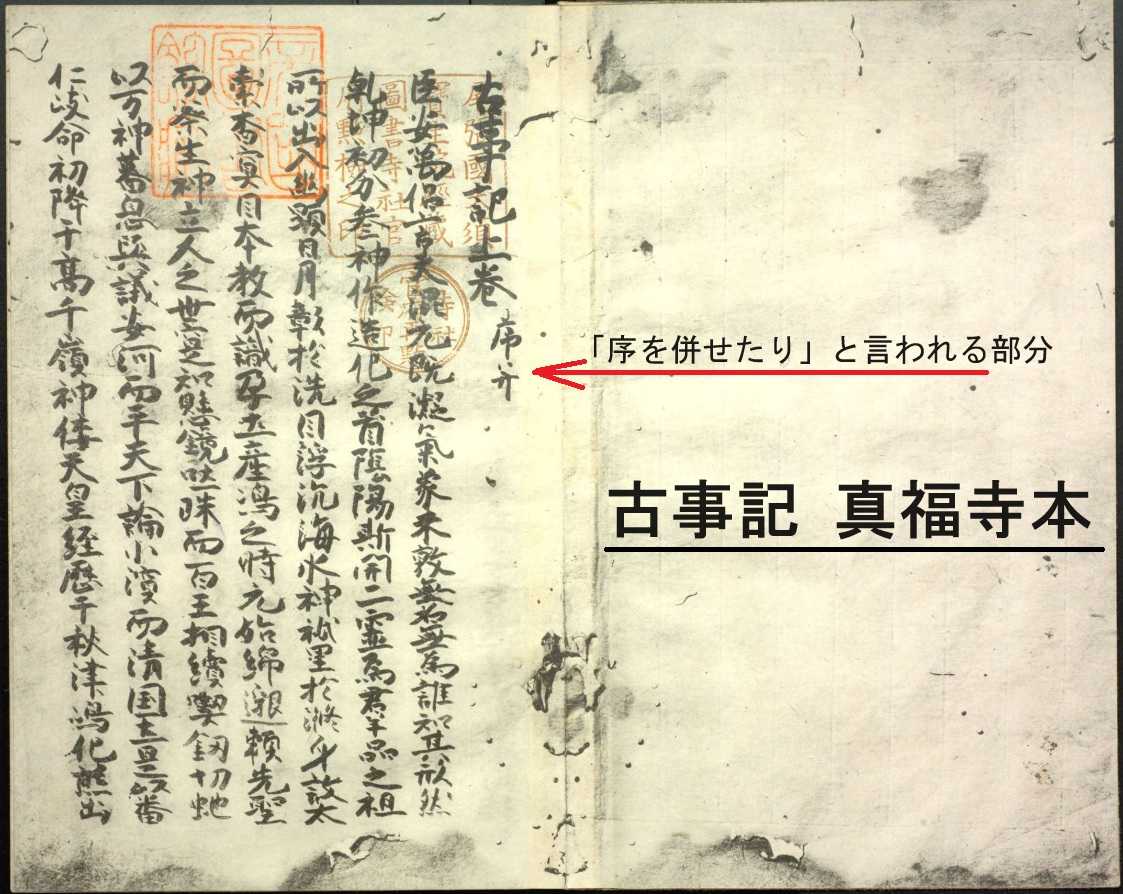 「序を併せたり」と言われる部分
古事記 真福寺本
古事記上巻 序并
臣安萬侶言夫混元既凝氣象未敦無名無為誰知其形然
乾坤初分参神作造化之首陰陽斯開二霊為群品之祖
所以出入幽顕日月彰於洗目浮沉海水神祇呈於滌身故太
素杳冥因本教而識孕土産嶋之時元始綿邈頼先聖
而察生神立人之世寔知懸鏡吐珠而百王相續喫釼切蛇
以万神蕃息與議安河而平天下論小濱而清国土是以番
仁岐命初降于高千嶺神倭天皇経歴于秋津嶋化熊出
圖書寺社官